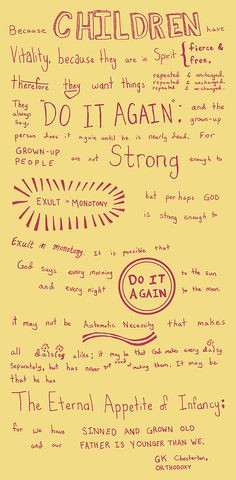 Because CHILDREN have
Vitality, because they are in Spirit { fierce &
free,
therefore they want things repeated & unchanged.
repeated & unchanged.
repeated & unchanged.
They always say, "DO IT AGAIN"; and the grown-up
person does it again until he is nearly dead. For
GROWN-UP PEOPLE are not Strong enough to
EXULT in MONOTONY
but perhaps GOD
is strong enough to
Exult in monotony. It is possible that
God says every morning DO IT AGAIN to the sun
and every night to the moon.
it may not be Automatic Necessity that makes
all daisies alike; it may be that God makes every daisy
Separately, but has never got tired of making them. It may be
that he has
The Eternal Appetite of Infancy;
for we have SINNED AND GROWN OLD
and our FATHER IS YOUNGER THAN WE.
GK Chesterton,
ORTHODOXY